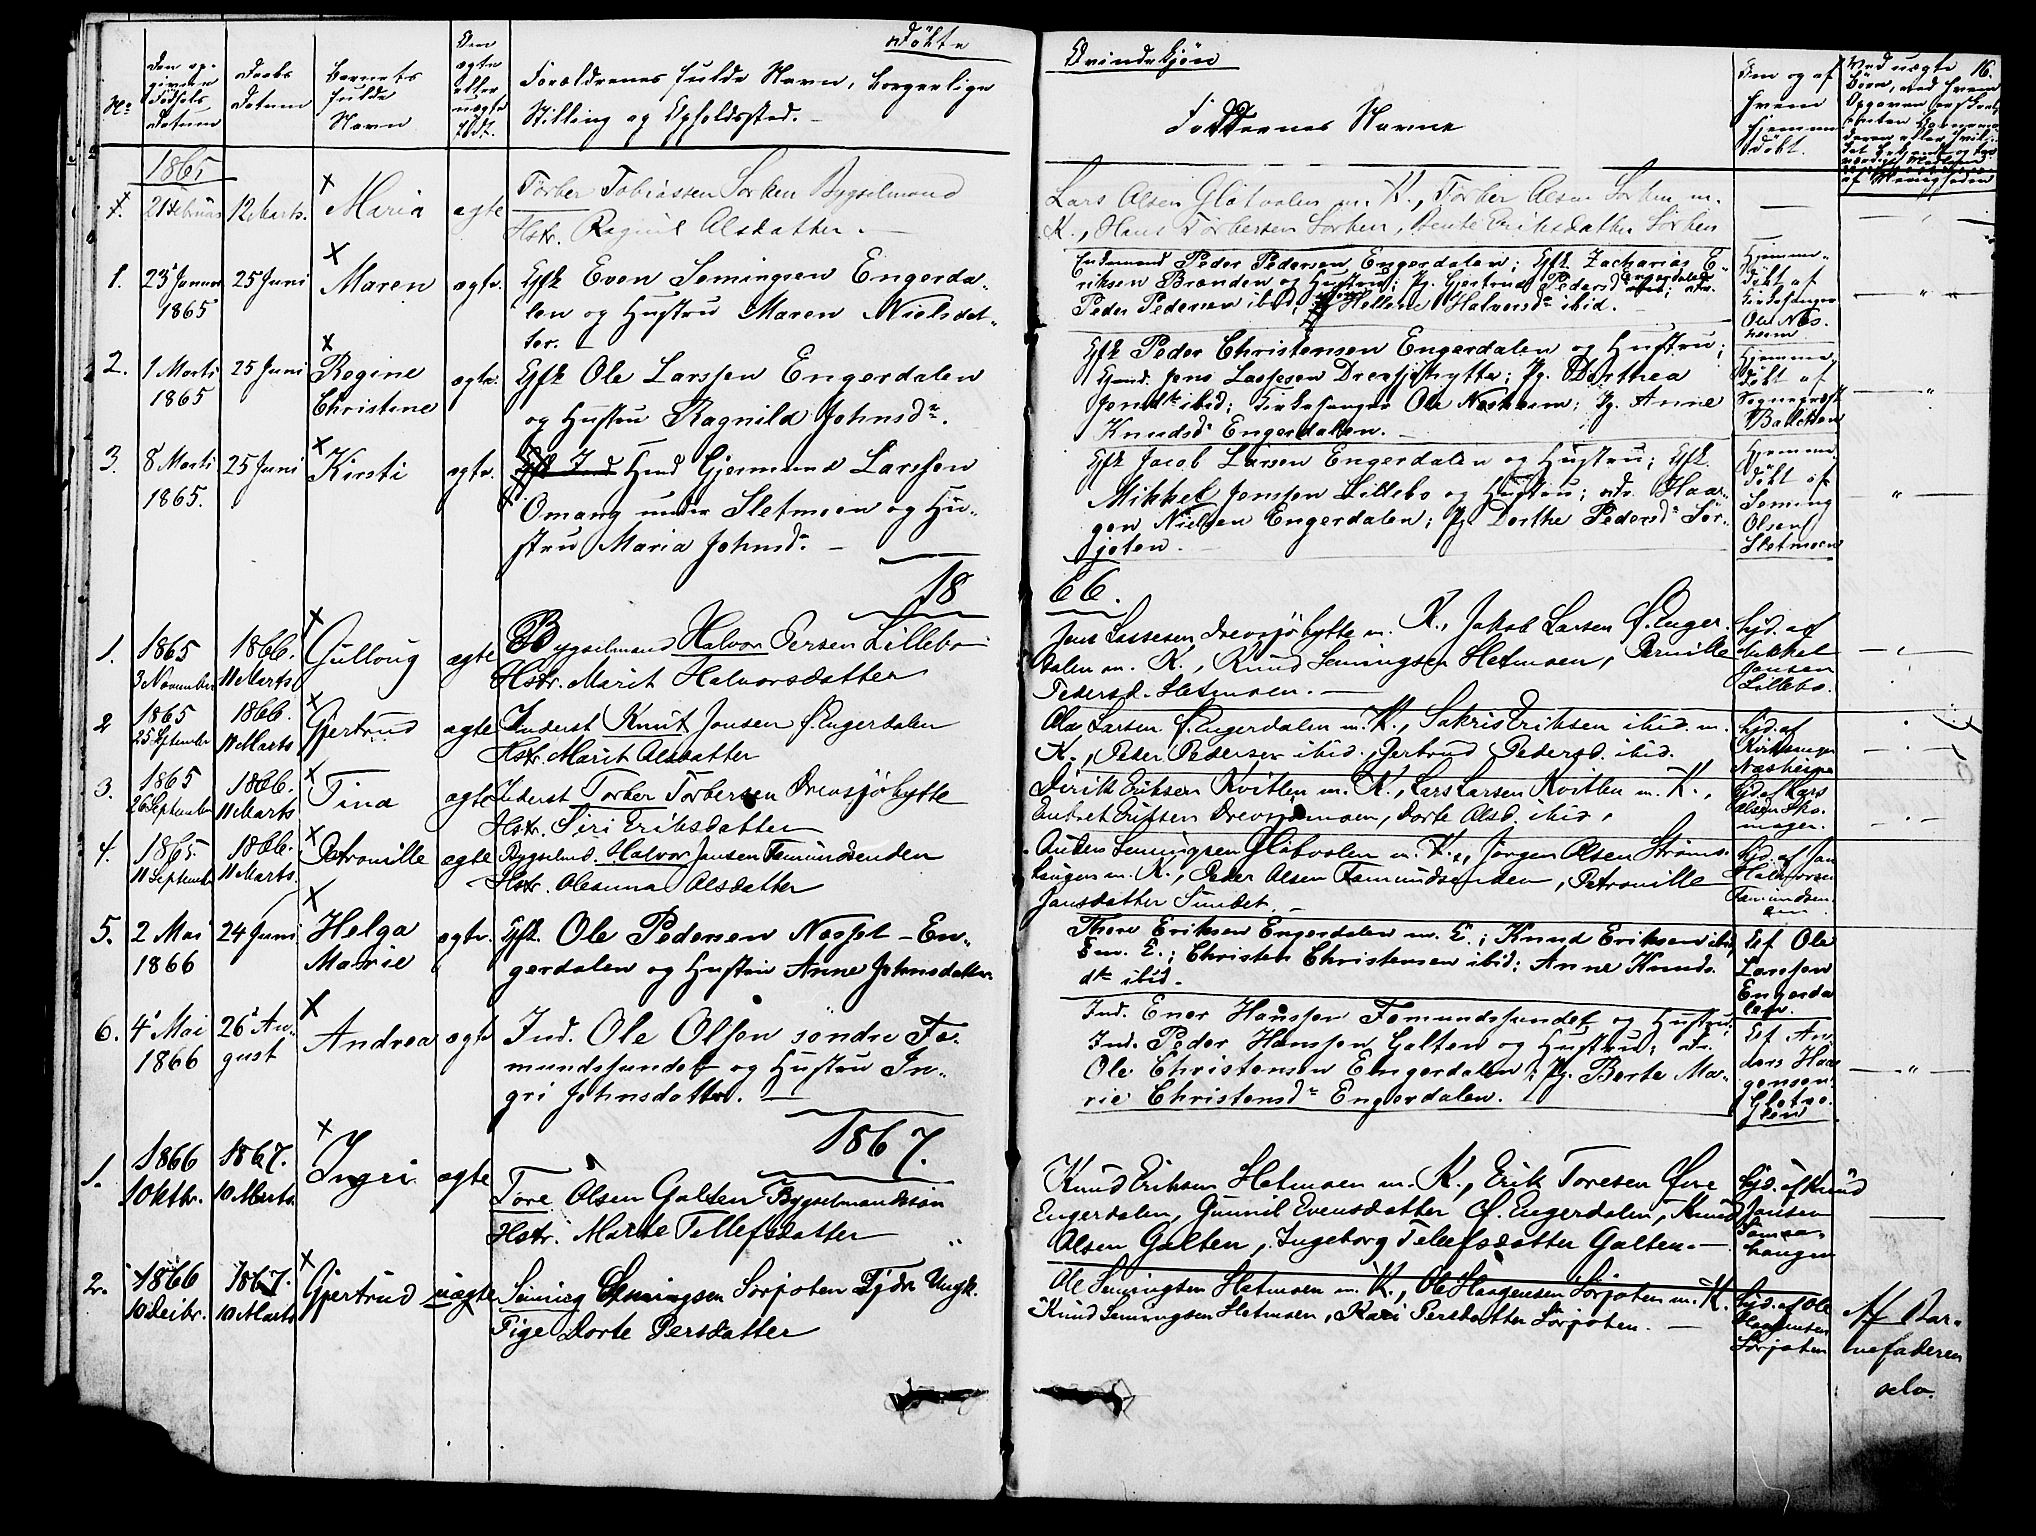 Døbte
Qvindekjøn
16.
No
Den opgivne Fødsels Datum
Daabs Datum
Barnets fulde Navn
Om ægte eller uægte født.
Forældrenes fulde Navn, borgerlige
Stilling og Opholdssted.
Faddernes Navne
Om og af hvem hjemmedøbt.
1865
21 Februar
12 Marts.
Maria
ægte
Torber Tobiassen Sorken Bygselmand
Hstr. Ragnil Olsdatter.
Lars Olsen Gløtvolen m. K., Torber Olsen Sorken m.
K., Hans Torbersen Sorken, Bente Eriksdatter Sorken
1.
23 Januar
1865
25 Juni
Maren
ægte.
Gfk Even Semingsen Engerda-
len og Hustru Maren Nielsdat-
ter.
Peder Pedersen Engerdalen; Gfk Zacharias E-
riksen Brænden og Hustru; Pg. Gjertrud Pedersd
Peder Pedersen ibid; Hellene Halvorsdr ibid.
Hjemme-
døbt af
Kirkesanger
Ole Næs-
heim
2.
1 Marts
1865
25 Juni
Regine
Christine
ægte.
Gfk Ole Larssen Engerdalen
og Hustru Ragnild Johnsdr.
Gfk Peder Christensen Engerdalen og Hustru;
Jens Lassesen Drevsjøhytte; Pg. Dorthea
Jensdr ibid; Kirkesanger Ole Næsheim; Pg. Anne
Knudsdr Engerdalen.
Hjemme-
døbt af
Sogneprest
3.
8 Marts
1865.
25 Juni
Kirsti
ægte.
Hmd Gjermund Larssen
Omang under Sletmoen og Hu-
stru Maria Johnsdr.
Gfk Jacob Larsen Engerdalen og Hustru; Gfk.
Mikkel Jonssen Lillebo og Hustru; Haa-
gen Nielsen Engerdalen; Pg. Dorthe Pedersdr Sør-
joten.
Hjemme-
døbt af
Seming
Olsen
Sletmoen
18
66.
1.
1865
3 November
1866.
11 Marts
Gulloug
ægte
Bygselmand Halvor Persen Lillebo
Hstr. Marit Halvorsdatter
Jens Lassesen Drevsjøhytte m. K., Jakob Larsen Ø. Enger-
dalen m. K., Knud Semingsen Sletmoen, Pernille
Pedersd. Sletmoen.
hjd. af
Mikkel
Jonsen
Lillebo.
2
1865
25 September
1866.
11 Marts
Gjertrud
ægte
Inderst Knut Jonsen Ø. Engerdalen
Hstr. Marit Olsdatter
Ole Larsen Ø. Engerdalen m. K., Sakris Eriksen ibid. m.
K., Peder Pedersen ibid., Gjertrud Pedersd. ibid.
hjd. af
Kirkesanger
Næsheim
3.
1865
26 September
1866.
11 Marts
Tina
ægte
Inderst Torber Torbersen Drevsjøhytte
Hstr. Siri Eriksdatter
Dirik Eriksen Kvitlen m. K., Lars Larsen Kvitlen m. K.,
Embret Eriksen Drevsjømoen, Dorte Olsd. ibid.
hjd. af Lars
Olsen Sko-
mager.
4.
1865
11 September
1866.
11 Marts
Petronille
ægte
Bygselmd. Halvor Jansen Femundsenden
Hstr. Olesuna Olsdatter
Anders Semingsen Gløtvolen m. K., Jørgen Olsen Strøms-
haugen m. K., Peder Olsen Femundsenden, Petronille
Jansdatter Sundet.
hjd. af Jan
Halvorsen
Femundsen-
den
5.
2 Mai
1866
24 Juni
Helga
Marie
ægte.
Gfk. Ole Pedersen Næsset - En-
gerdalen og Hustru Anne Johnsdatter.
Thore Eriksen Engerdalen m. E.; Knud Eriksen ibid
m. E.; Christen Christensen ibid; Anne Knuds-
dtr ibid.
Af Ole
Larssen
Engerda
len.
6.
4 Mai
1866
26 Au-
gust
Andrea
ægte
Ind. Ole Olsen søndre Fe-
mundssundet og Hustru In-
gri Johnsdatter.
Ind. Ener Hanssen Femundssundet og Hustru;
Ind. Peder Hanssen Galten og Hustru;
Ole Christensen Engerdalen; Pg. Berte Ma-
rie Christensdr Engerdalen.
Af An-
ders Haa-
gensen
Gløtvo-
len
1867.
1.
1866
1 Oktbr.
1867.
10 Marts
Ingri
ægte
Tore Olsen Galten Bygselmandssøn
Hstr. Marte Tellefsdatter
Knud Eriksen Sletmoen m. K., Erik Toresen Øvre
Engerdalen, Gunnil Evensdatter Ø. Engerdalen, Knud
Olsen Galten, Ingeborg Tellefsdatter Galten.
hjd. af Knud
Jansen
2.
1866
10 Decbr.
1867.
10 Marts
Gjertrud
uægte
Seming Semingsen Sørjoten Tjdr. Ungk.
Pige Dorte Persdatter
Ole Semingsen Sletmoen m. K., Ole Haagensen Sørjoten m. K.
Knud Semingsen Sletmoen, Kari Persdatter Sørjoten.
hjd. af Ole
Haagensen
Sørjoten
Af Bar-
nefaderen
selv.